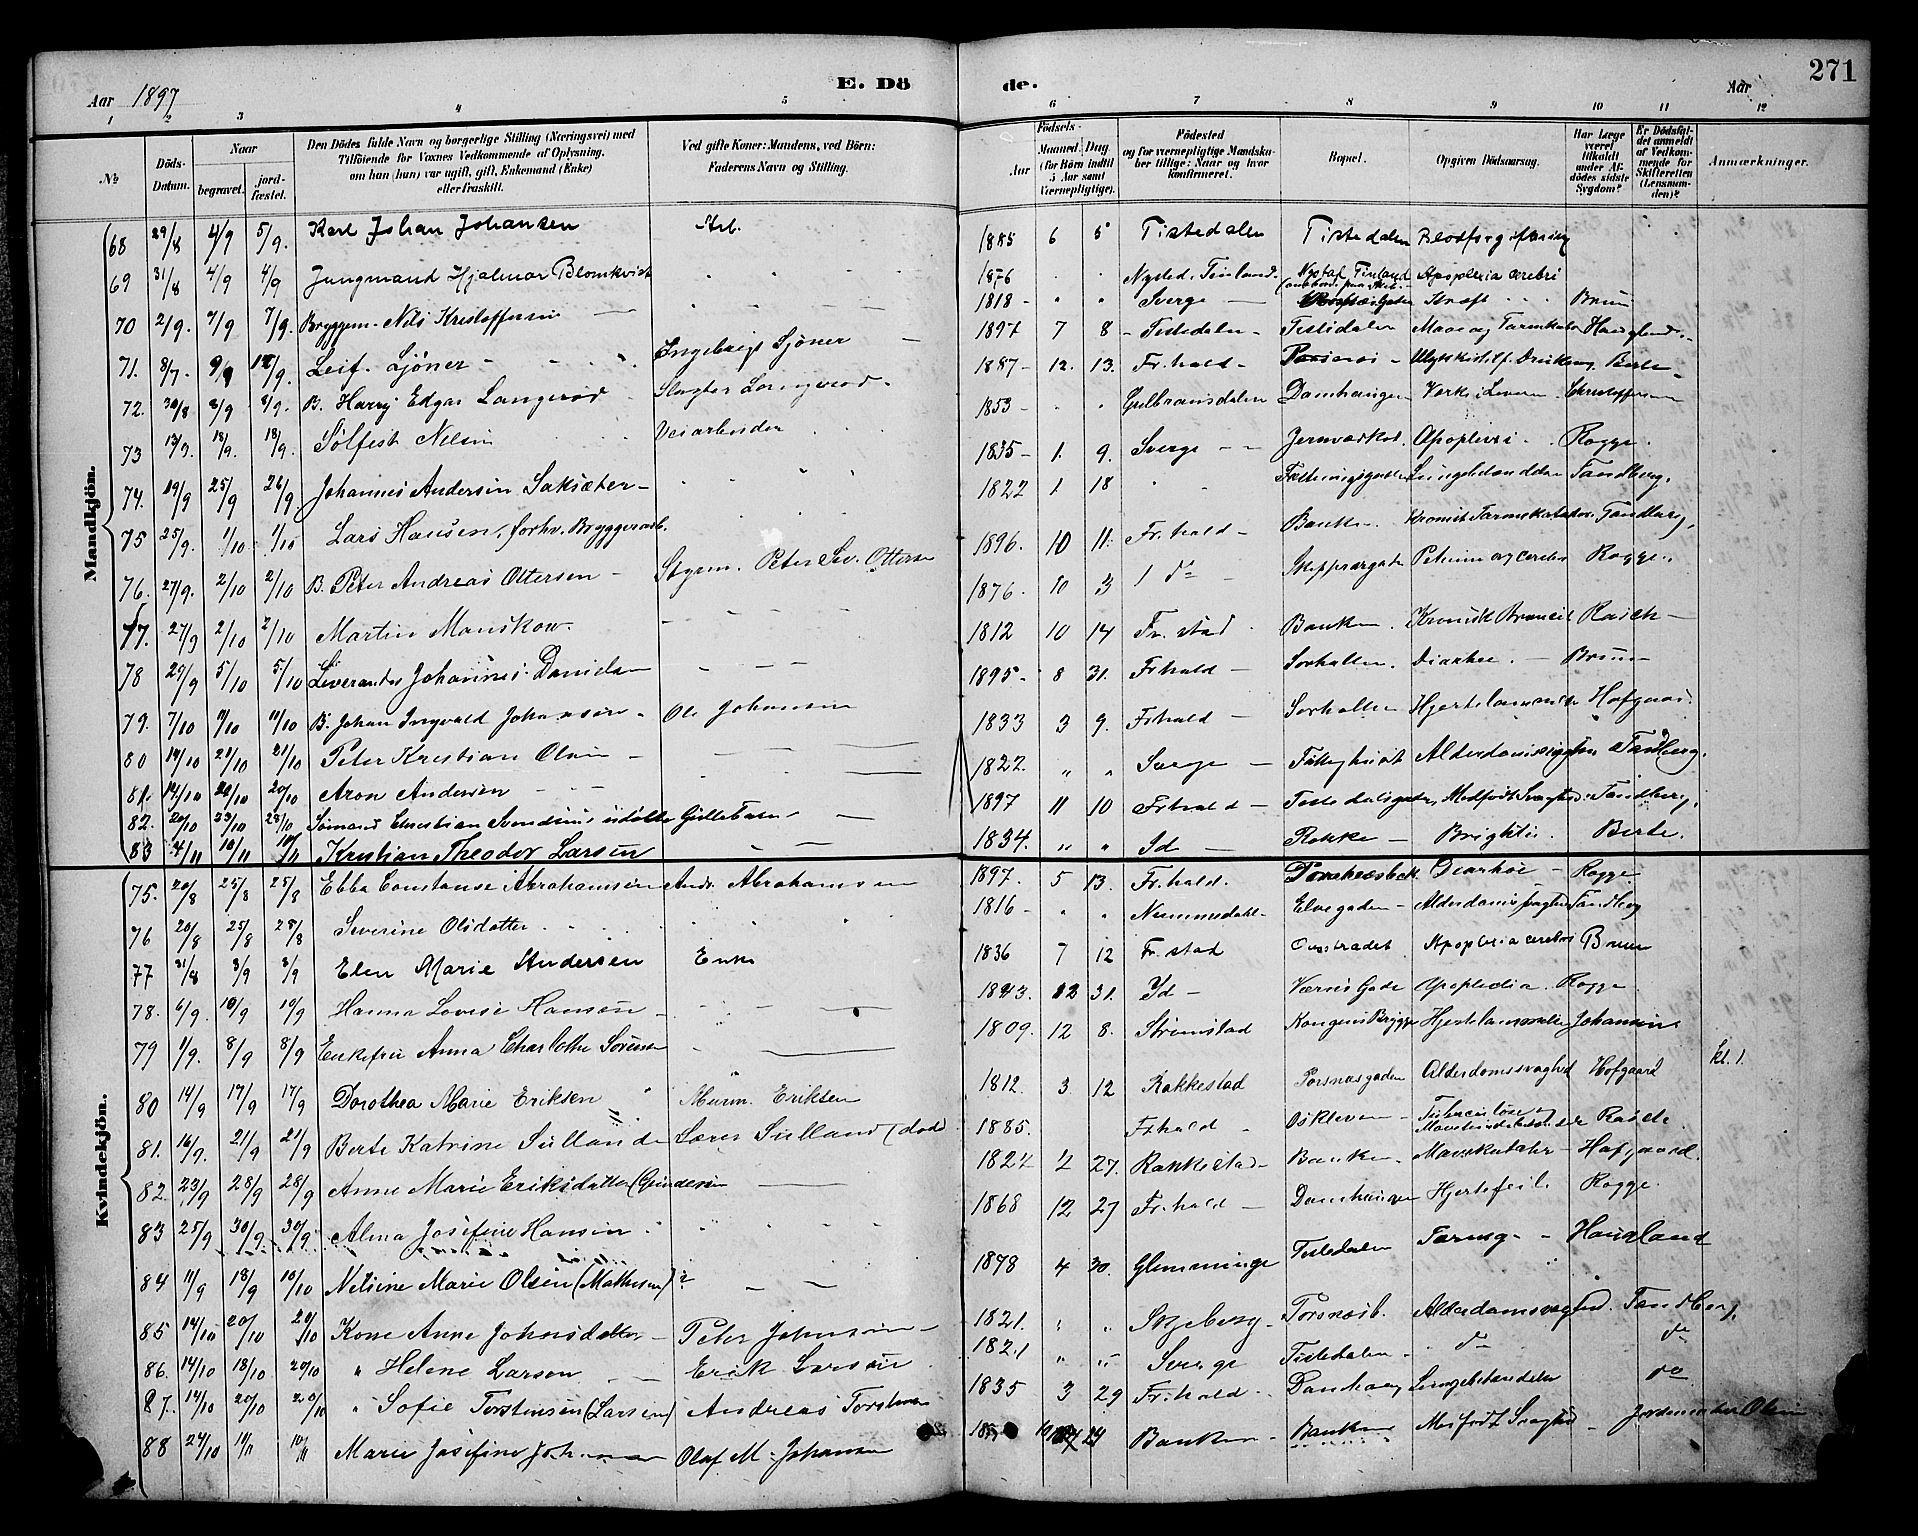 Aar 1897
E. Dö
de.
Aar
271
1 2 3 4 5 6 7 8 9 10 11 12
№
Döds-Datum.
Naar
begravet.
jord-fæstet.
Den Dödes fulde Navn og borgerlige Stilling (Næringsvei) med Tilföiende for Voxnes Vedkommende af Oplysning, om han (hun) var ugift, gift, Enkemand (Enke) eller fraskilt.
Ved gifte Koner: Mandens, ved Börn: Faderens Navn og Stilling.
Födsels-
Aar
Maaned. Dag
(for Börn indtil 5 Aar samt Værnepligtige).
Födested og for værnepligtige Mandskaber tillige: Naar og hvor konfirmeret.
Bopæl.
Opgiven Dödsaarsag.
Har Læge været tilkaldt under Afdödes sidste Sygdom?
Er Dödsfaldet anmeldt af Vedkommende for Skifteretten (Lensmanden)?
Anmærkninger.
Mandkjön.
68 29/8 4/9 5/9. Karl Johan Johansen Arb. 1885 6 5 Tistedalen Tistedalen Blodforgiftning
69 31/8 4/9 4/9 Jungmand Hjalmar Blomkvist 1876 Nysted, Finland. Nystad Finland Apoplexia cerebri
70 2/9. 7/9 7/9. Bryggem. Nils Kristoffersen 1818 " " Sverge Kræft Bruun
71. 8/7. 9/9 12/9. Leif Sjöner Ingebrigt Sjöner 1897 7 8 Tistedalen Tistedalen Mave og Tarmkatar Haugland
72. 30/8 8/9 8/9. B. Harry Edgar Langerød Slagter Langerød 1887 12. 13. Fr.hald Drukning Berle
73 13/9. 18/9. 18/9. Sølfest Nilsen Veiarbeider 1853 Gulbransdalen Damhaugen Værk i Leveren Christoffersen
74. 19/9 25/9 26/9. Johannes Andersen Saksæter 1835 1. 9. Sverge Apoplexi Rogge.
75 25/9. 1/10 1/10 Lars Hansen, forhv. Bryggerarb. 1822 1 18 Fæstningsgaden Lungebetændelse Tandberg.
76. 27/9. 2/10 2/10 B. Peter Andreas Ottersen Styrm. Peter Sev. Ottersen 1896. 10 11. Fr.hald Banken Kronisk Tarmkatar Tandberg
77. 27/9 2/10 2/10 Martin Manskow. 1876. 10 3 do Skippergaden Rogge.
78 29/9 5/10 5/10 Leverandør Johannes Danielsen 1812 10 14 Fr.stad Banken. Kronisk Bronkit Rasch
79. 7/10 11/10 11/10 B. Johan Ingvald Johansen Ole Johansen 1895 8 31. Frhald Sorhallen. Diarhee. Bruun
80 14/10 21/10 21/10 Peter Kristian Olsen 1833 3 9. Frhald Sorhallen Hjertelammelse Hofgaard
81. 14/10 20/10 20/10 Aron Andersen 1822. " " Sverge Fattighuset Alderdomssvaghed Tandberg.
82. 20/10 23/10 23/10 Sømand Christian Svendsens udøbte Guttebarn 1897 11 10 Frhald Tistedalsgaden Medfødt Svaghed Tandberg.
83 4/11 10/11 10/11 Kristian Theodor Larsen 1834. " " Id Rokke Brighti. Berle.
Kvindekjön.
75. 20/8 25/8 25/8 Ebba Constanse Abrahamsen Andr. Abrahamsen 1897. 5 13. Fr.hald. Diarhöe Rogge
76 20/8 25/8 25/8 Severine Olsdatter 1816 " " Nummedahl Elvegaden Alderdomssvaghed Tandberg
77 31/8 3/9 3/9 Elen Marie Andersen Enke 1836 7 12 Fr.stad Apoplexia cerebri Bruun
78. 6/9. 10/9 10/9 Hanna Lovise Hansen 1843. 12 31. Id Værnes Gade Apoplexia. Rogge.
79 1/9. 8/9 8/9 Enkefru Anna Charlotte Sørensen 1809. 12 8. Strømstad Kongens Brygge Hjertelammelse Johansen
80 14/9 17/9 17/9 Dorothea Marie Eriksen Murm. Eriksen 1812. 3 12 Rakkestad Torsnesgaden Alderdomssvaghed Hofgaard kl. 1.
81. 16/9. 21/9 21/9 Berte Katrine Sulland Lærer Sulland (død) 1885. Frhald Oskleven Tuberculose og Mavetarmbetændelse Rasch.
82. 23/9 28/9 28/9 Anne Marie Eriksdatter (Gundersen 1824 2 27. Rakkestad Banken Mavekatahr Hofgaard.
83 25/9 30/9 30/9 Alma Josefine Hansen 1868 12 27 Fr.hald Damhaugen Hjertefeil. Rogge.
84 11/9 18/9 10/10 Nelsine Marie Olsen (Mathisen)? 1878 4 30. Glemminge Tistedalen Tæring Haugland
85 14/10 20/10 20/10 Kone Anne Johnsdatter Peter Johnsen 1821. " " Skjeberg Torsnæsb. Alderdomssvaghed. Tandberg.
86. 14/10 18/10 20/10 " Helene Larsen Erik Larsen 1821 " " Sverge Tistedalen do do
87. 14/10 20/10 20/10 " Sofie Torstensen (Larsen) Andreas Torstensen 1835 3 29 Fr.hald Damhaug Lungebetændelse do
88 24/10 10/11 10/11 Marie Josefine Johansen Olaf M. Johansen 10 24 Banken Banken Medfødt Svaghed Jordemoder Olsen